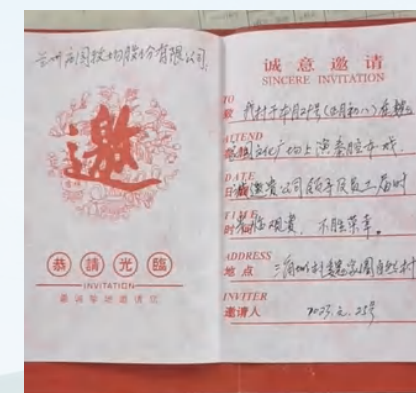 兰州庄园牧场股份有限公司:
邀
恭請光臨
INVITATION
最诚挚地邀请您
诚意邀请
SINCERE INVITATION
TO
致 我村于本月27号(四月初八)在魏
ATTEND
家圈文化广场上演秦腔本戏.
DATE
日期 邀贵公司领导及员工届时
TIME
时间 观赏,不胜荣幸。
ADDRESS
地点 三角城村魏家圈自然村
INVITER
邀请人 2023.